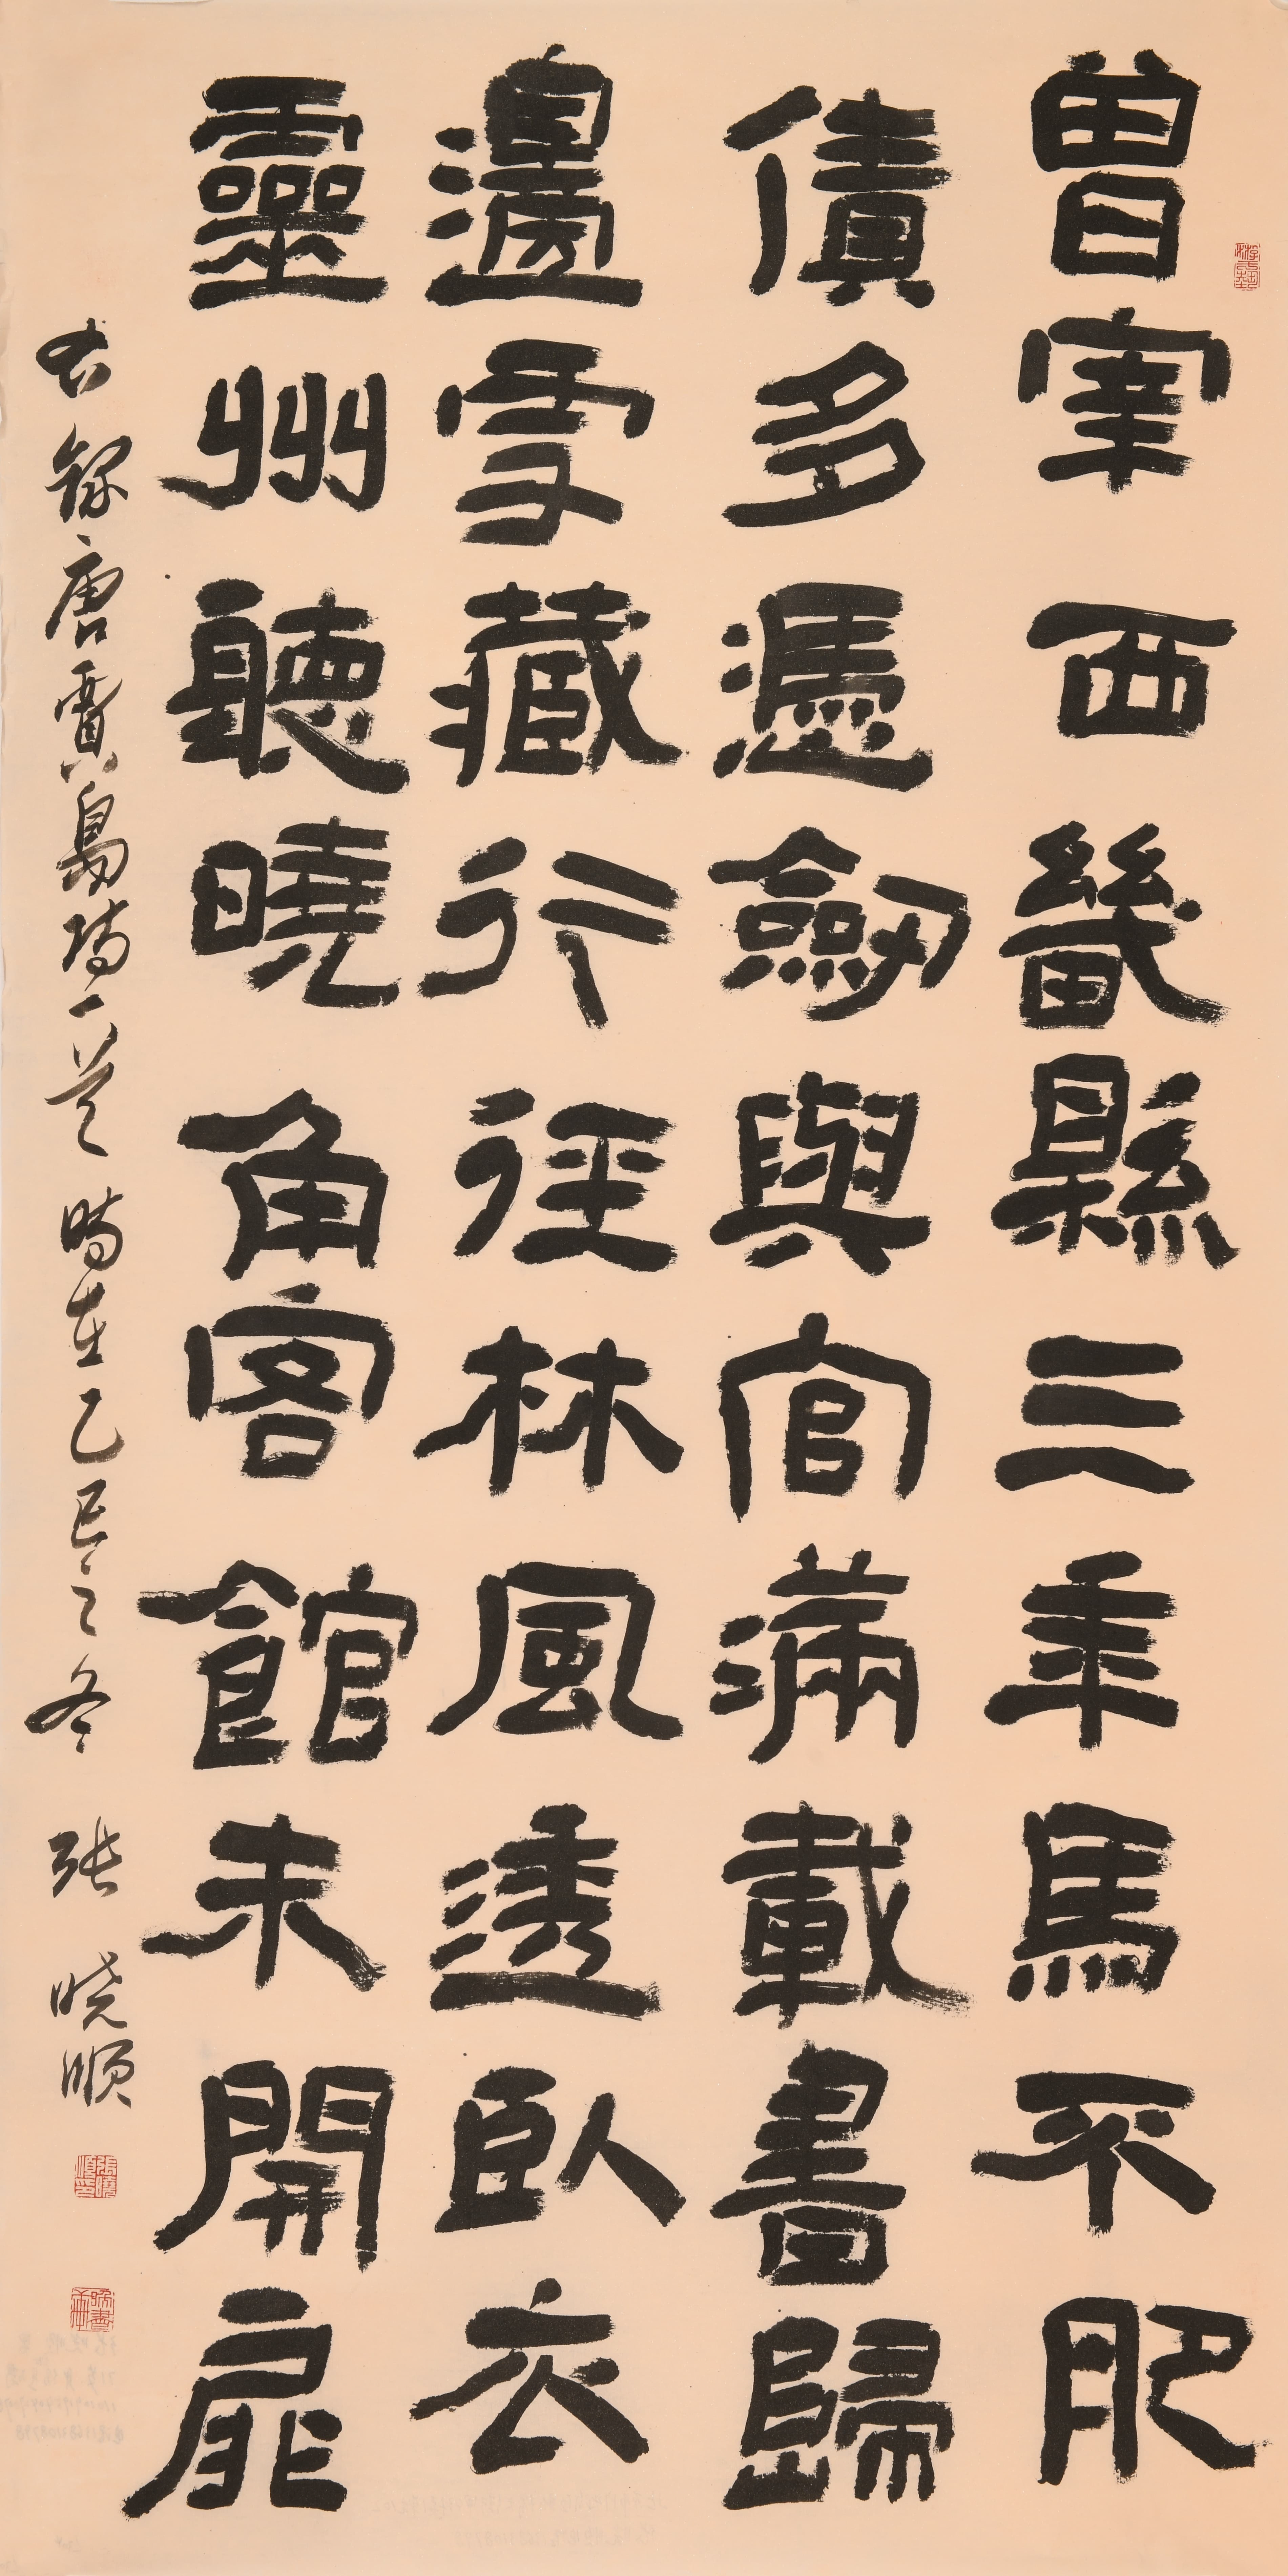 曾宰西畿縣三年馬不肥
債多憑劒與官滿載書歸
邊雪藏行徑林風透臥衣
靈州聽曉角客館未開扉
右錄唐賈島詩一首 時在乙巳之冬 張曉順